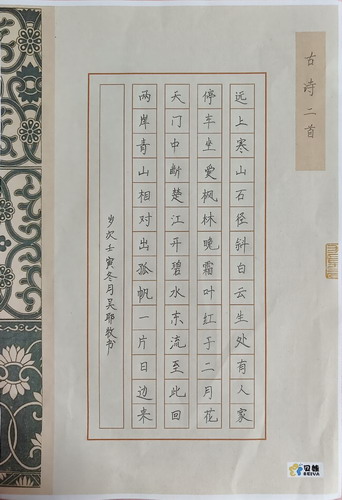 古诗二首
远上寒山石径斜白云生处有人家
停车坐爱枫林晚霜叶红于二月花
天门中断楚江开碧水东流至此回
两岸青山相对出孤帆一片日边来
岁次壬寅冬月吴牧书
BEIVA